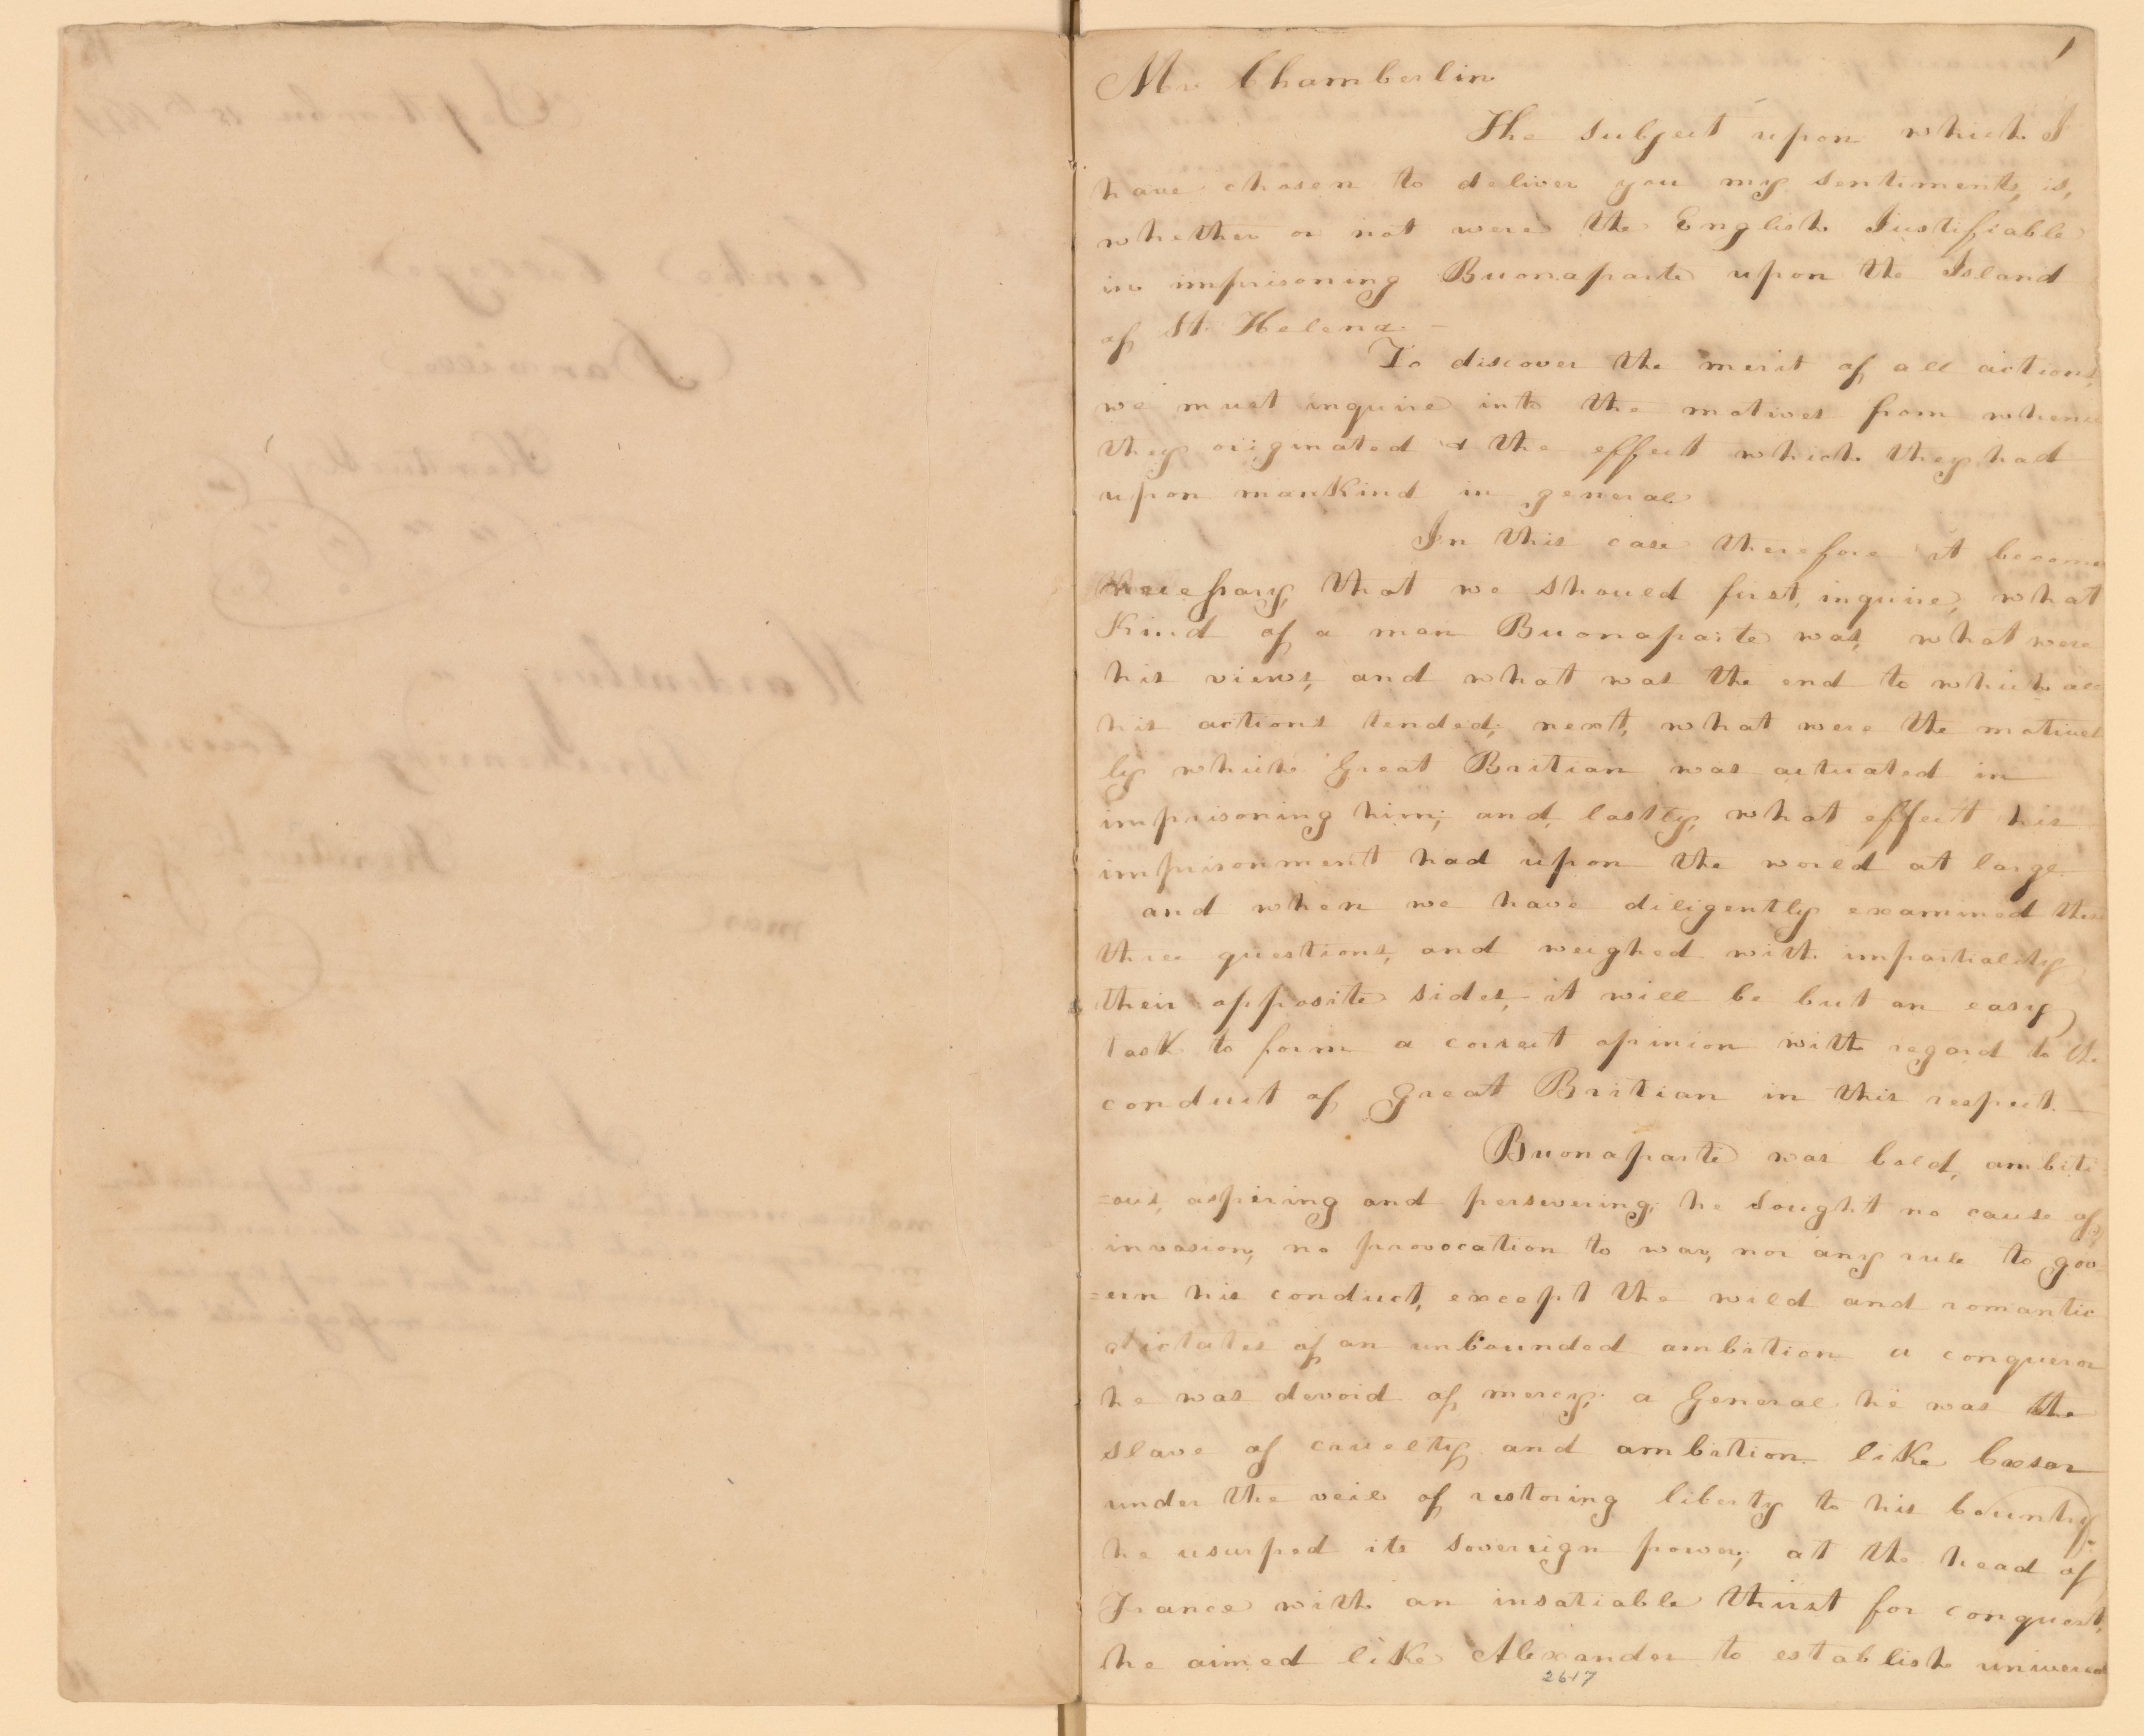 1
Mr Chamberlin
The subject upon which I
have chosen to deliver you my sentiments, is,
whether or not were the English Justifiable
in imprisoning Buonaparte upon the Island
of St. Helena. —
To discover the merit of all actions,
we must inquire into the motives from whence
they originated & the effect which they had
upon mankind in general
In this case therefore it becomes
necessary, that we should first, inquire, what
Kind of a man Buonaparte was, what were
his views, and what was the end to which all
his actions tended; next, what were the motives
by which Great Britian was actuated in
imprisoning him; and, lastly, what effect his
imprisonment had upon the world at large.
and when we have diligently examined these
three questions, and weighed with impartiality
their opposite sides, it will be but an easy
task to form a correct opinion with regard to the
conduct of Great Britian in this respect. —
Buonaparte was bold, ambiti
=ous, aspiring and persevering; he sought no cause of
invasion, no provocation to war, nor any rule to gov
=ern his conduct, except the wild and romantic
dictates of an unbounded ambition a conqueror
he was devoid of mercy; a General he was the
slave of cruelty and ambition like Cæsar
under the veil of restoring liberty to his Country,
he usurped its sovereign power; at the head of
France with an insatiable thirst for conquest,
he aimed like Alexander to establish universal
2617